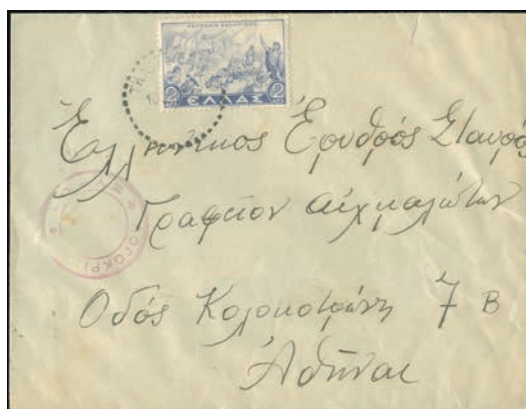 2 ΕΛΛΑΣ 2
Ἑλληνικος Ἐρυθρός Σταυρός
Γραφεῖον αἰχμαλώτων
Ὁδός Κολοκοτρώνη 7 Β
Ἀθῆναι